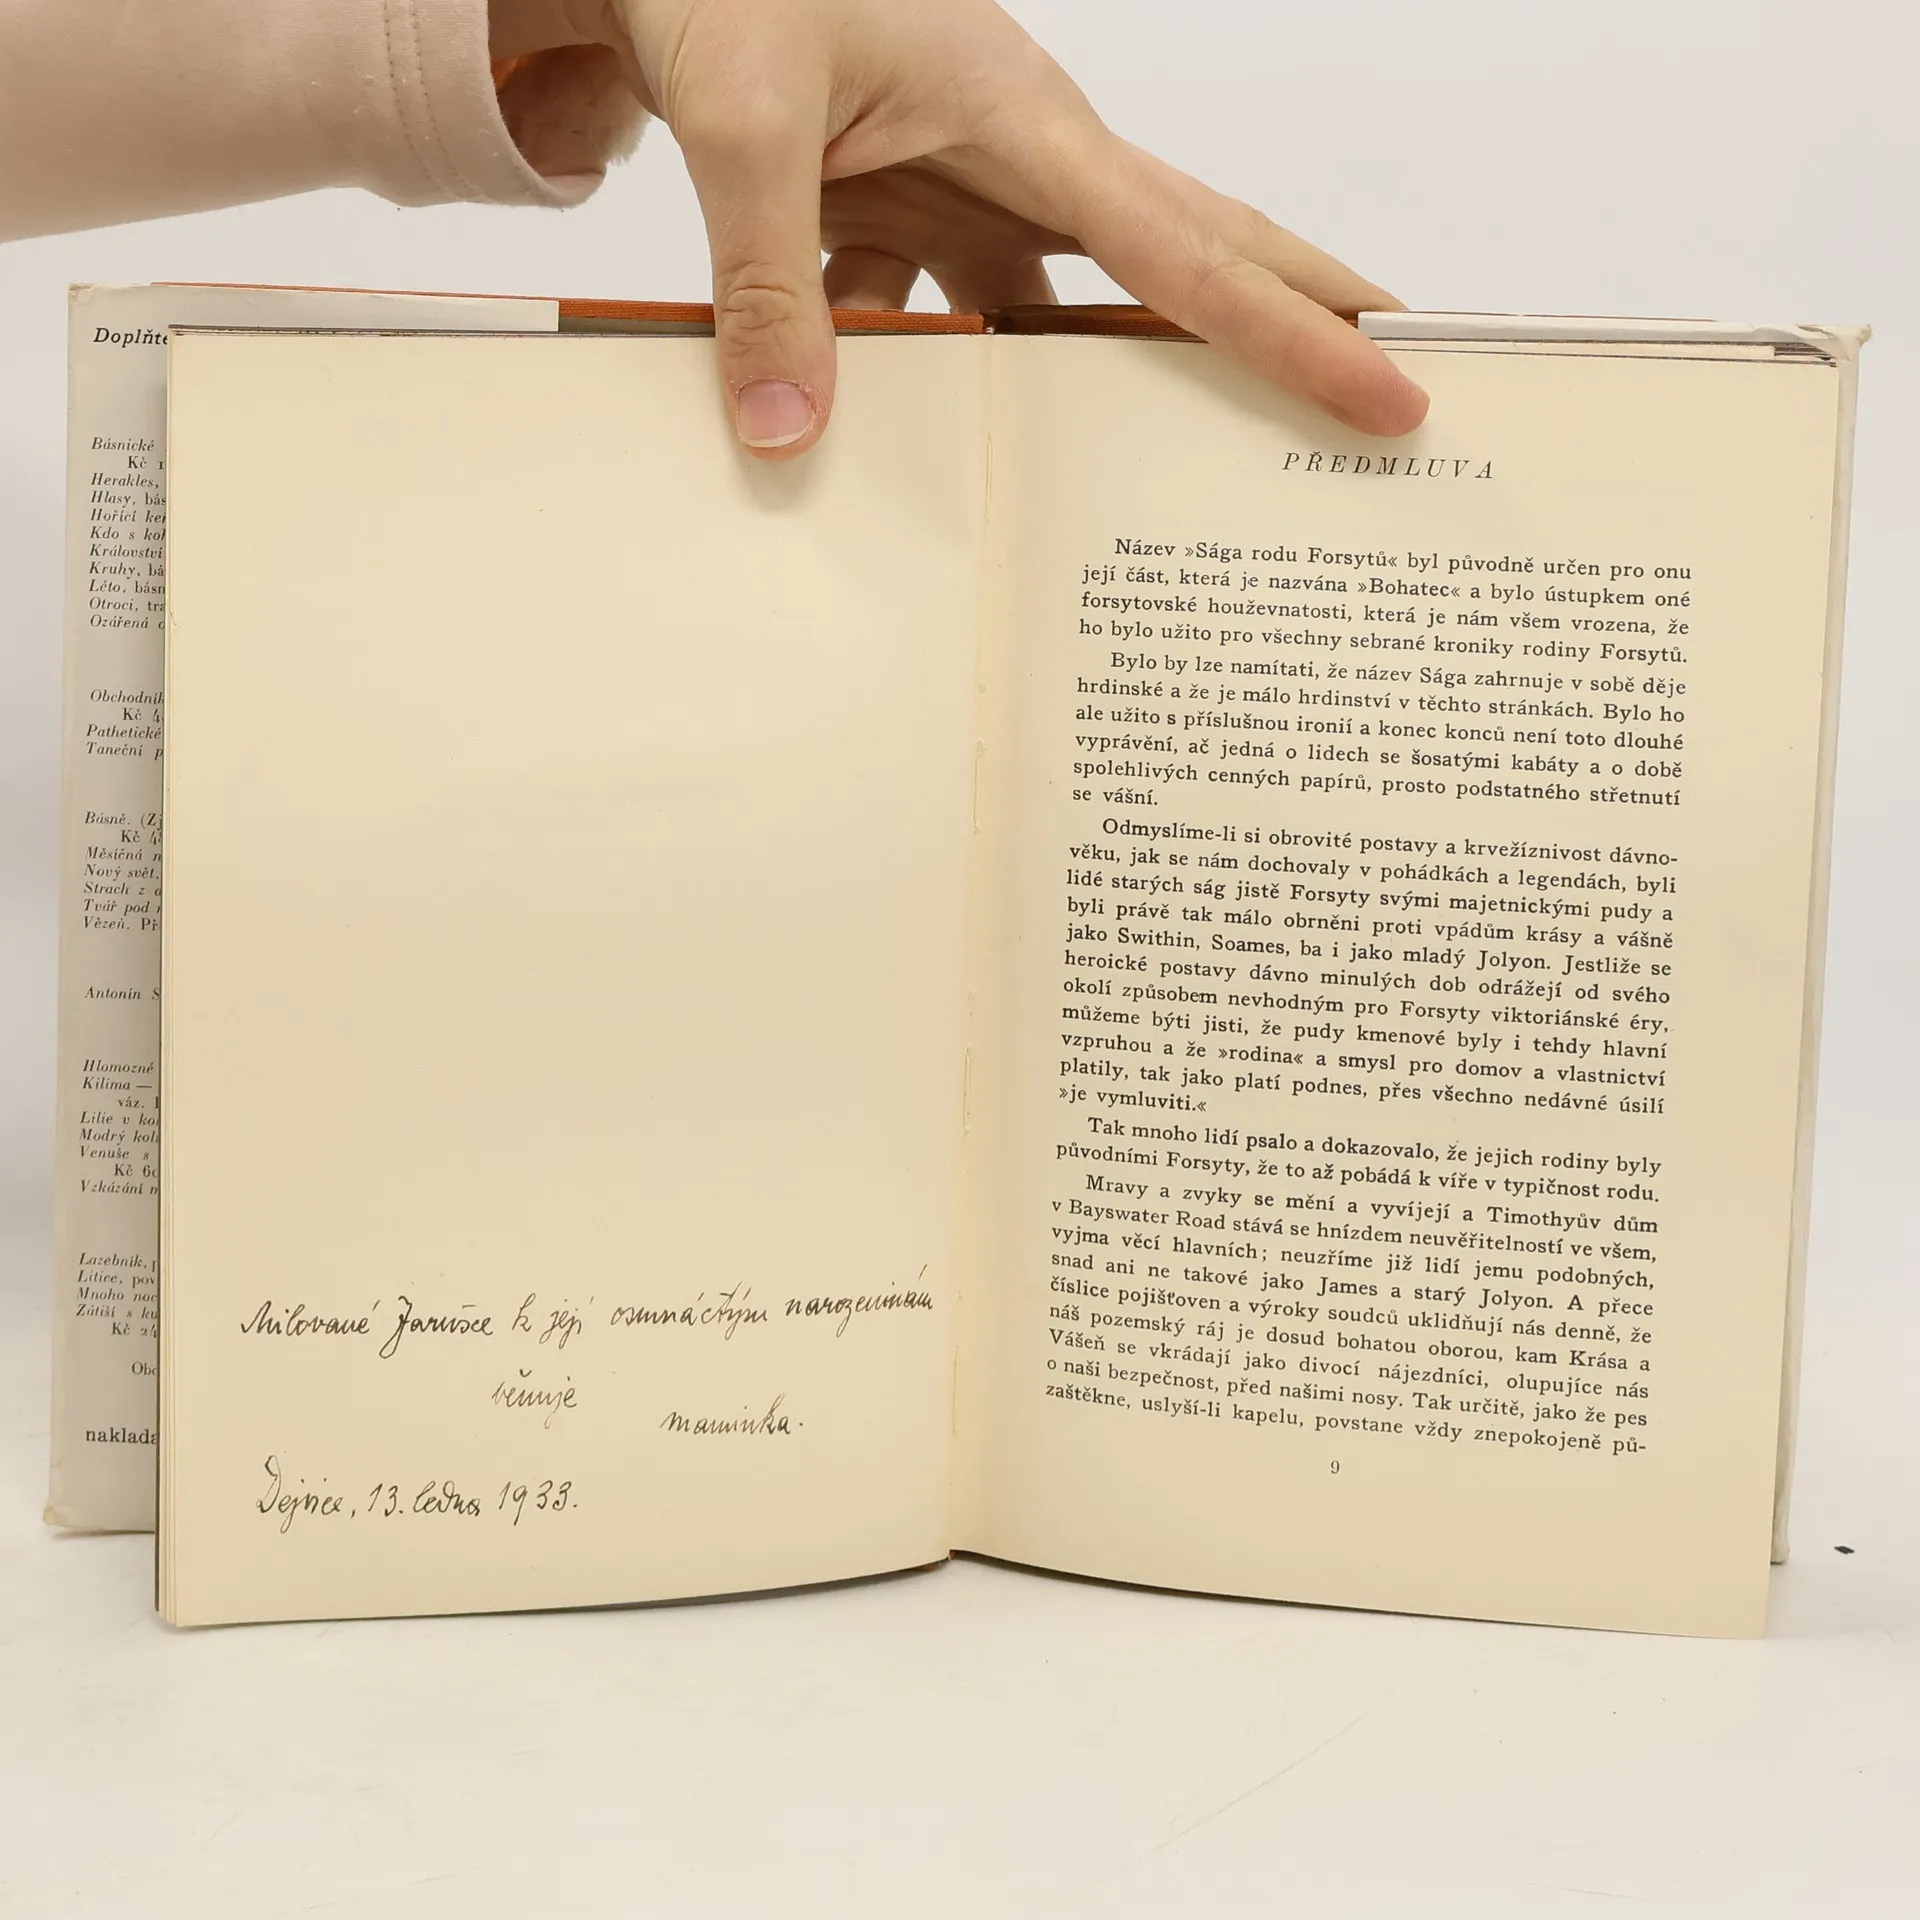 Doplňte
Básnické
Kč 1
Herakles,
Hlasy, bás
Hořící keř
Kdo s kol
Království
Kruhy, bá
Léto, básn
Otroci, tra
Ozářená
Obchodník
Kč 4
Pathetické
Taneční p
Básně. (Zj
Kč 48
Měsíčná n
Nový svět.
Strach z
Tvář pod
Vězeň. Př
Antonín S
Hlomozné
Kilima —
váz.
Lilie v ko
Modrý kol
Venuše s
Kč 60
Vzkázání n
Lazebník, p
Litice, pov
Mnoho noc
Zátiší s ku
Kč 24
Obc
naklada
Milované Jarušce k její osmnáctým narozeninám
věnuje
maminka.
Dejvice, 13. ledna 1933.
PŘEDMLUVA
Název »Sága rodu Forsytů« byl původně určen pro onu
její část, která je nazvána »Bohatec« a bylo ústupkem oné
forsytovské houževnatosti, která je nám všem vrozena, že
ho bylo užito pro všechny sebrané kroniky rodiny Forsytů.
Bylo by lze namítati, že název Sága zahrnuje v sobě děje
hrdinské a že je málo hrdinství v těchto stránkách. Bylo ho
ale užito s příslušnou ironií a konec konců není toto dlouhé
vyprávění, ač jedná o lidech se šosatými kabáty a o době
spolehlivých cenných papírů, prosto podstatného střetnutí
se vášní.
Odmyslíme-li si obrovité postavy a krvežíznivost dávno-
věku, jak se nám dochovaly v pohádkách a legendách, byli
lidé starých ság jistě Forsyty svými majetnickými pudy a
byli právě tak málo obrněni proti vpádům krásy a vášně
jako Swithin, Soames, ba i jako mladý Jolyon. Jestliže se
heroické postavy dávno minulých dob odrážejí od svého
okolí způsobem nevhodným pro Forsyty viktoriánské éry,
můžeme býti jisti, že pudy kmenové byly i tehdy hlavní
vzpruhou a že »rodina« a smysl pro domov a vlastnictví
platily, tak jako platí podnes, přes všechno nedávné úsilí
»je vymluviti.«
Tak mnoho lidí psalo a dokazovalo, že jejich rodiny byly
původními Forsyty, že to až pobádá k víře v typičnost rodu.
Mravy a zvyky se mění a vyvíjejí a Timothyův dům
v Bayswater Road stává se hnízdem neuvěřitelností ve všem,
vyjma věcí hlavních; neuzříme již lidí jemu podobných,
snad ani ne takové jako James a starý Jolyon. A přece
číslice pojišťoven a výroky soudců uklidňují nás denně, že
náš pozemský ráj je dosud bohatou oborou, kam Krása a
Vášeň se vkrádají jako divocí nájezdníci, olupujíce nás
o naši bezpečnost, před našimi nosy. Tak určitě, jako že pes
zaštěkne, uslyší-li kapelu, povstane vždy znepokojeně pů-
9